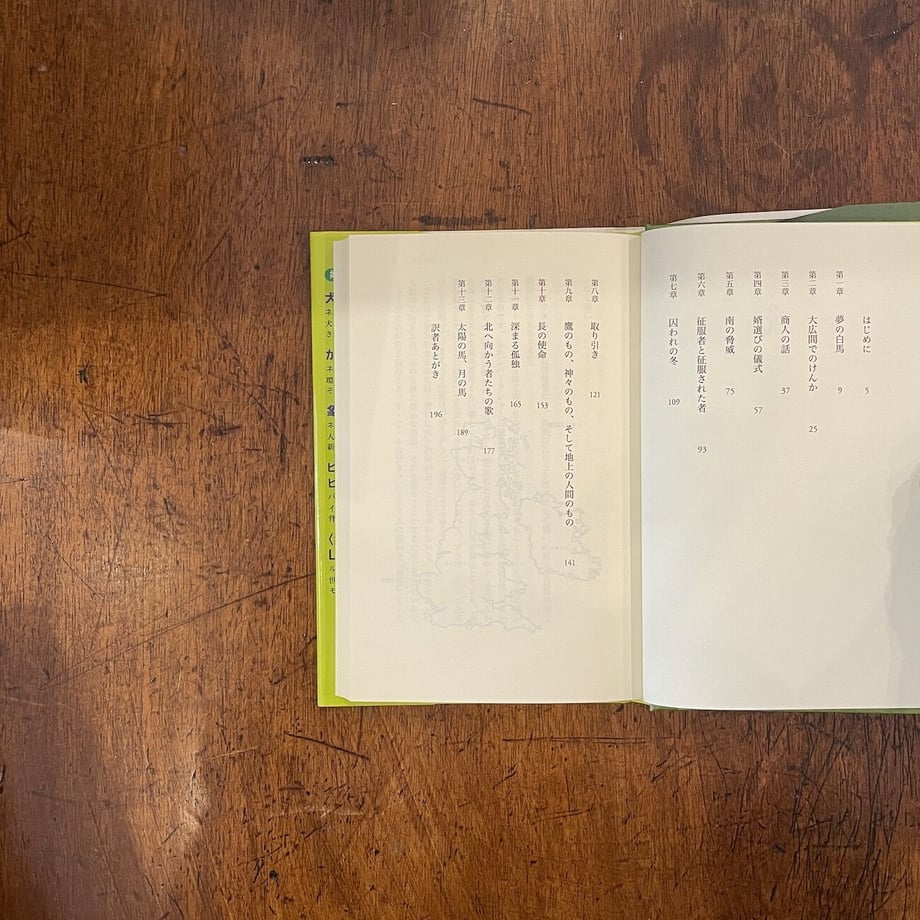 はじめに 5
第一章 夢の白馬 9
第二章 大広間でのけんか 25
第三章 商人の話 37
第四章 婿選びの儀式 57
第五章 南の脅威 75
第六章 征服者と征服された者 93
第七章 囚われの冬 109
第八章 取り引き 121
第九章 鷹のもの、神々のもの、そして地上の人間のもの 141
第十章 長の使命 153
第十一章 深まる孤独 165
第十二章 北へ向かう者たちの歌 177
第十三章 太陽の馬、月の馬 189
訳者あとがき 196